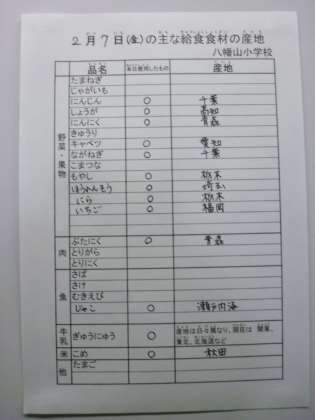 2月7日(金)の主な給食食材の産地
八幡山小学校
品名 本日使用したもの 産地
野菜・果物
たまねぎ
じゃがいも
にんじん ○ 千葉
しょうが ○ 高知
にんにく ○ 青森
きゅうり
キャベツ ○ 愛知
ながねぎ ○ 千葉
こまつな
もやし ○ 栃木
ほうれんそう ○ 埼玉
にら ○ 栃木
いちご ○ 福岡
肉
ぶたにく ○ 青森
とりがら
とりにく
魚
さば
さけ
むきえび
じゃこ ○ 瀬戸内海
牛乳 ぎゅうにゅう ○ 産地は日々異なり、現在は 関東、
東北、北海道など
米 こめ ○ 秋田
他 たまご